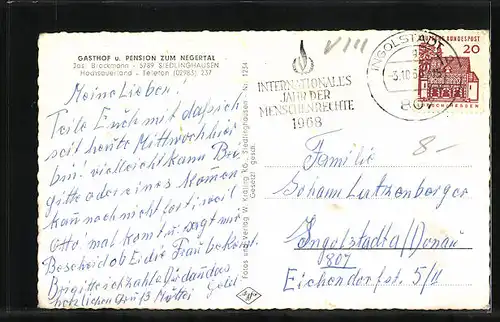 GASTHOF u. PENSION ZUM NEGERTAL
Jos. Brockmann - 5789 SIEDLINGHAUSEN
Hochsauerland - Telefon (02983) 237
Meine Lieben!
Teile Euch mit daß ich
seit heute Mittwoch hier
bin! vielleicht kann Bri-
gitte oder eines
kann noch nicht fort weil
Otto mal kommt u. sagt mir
Bescheid ob Ei die Frau bekommt.
Brigitte ich zahle
herzlichen Gruß Mutti
Fotos und Verlag W. Siedlinghausen - Nr. 1254
Gesetzl. gesch.
VIII
INTERNATIONALES
JAHR DER
MENSCHENRECHTE
1968
INGOLSTADT
807
DEUTSCHE BUNDESPOST
20
LORSCH/HESSEN
8-
Familie
Johann Lutzenberger
Ingolstadt/Donau
807
Eichendorfstr. 5/II